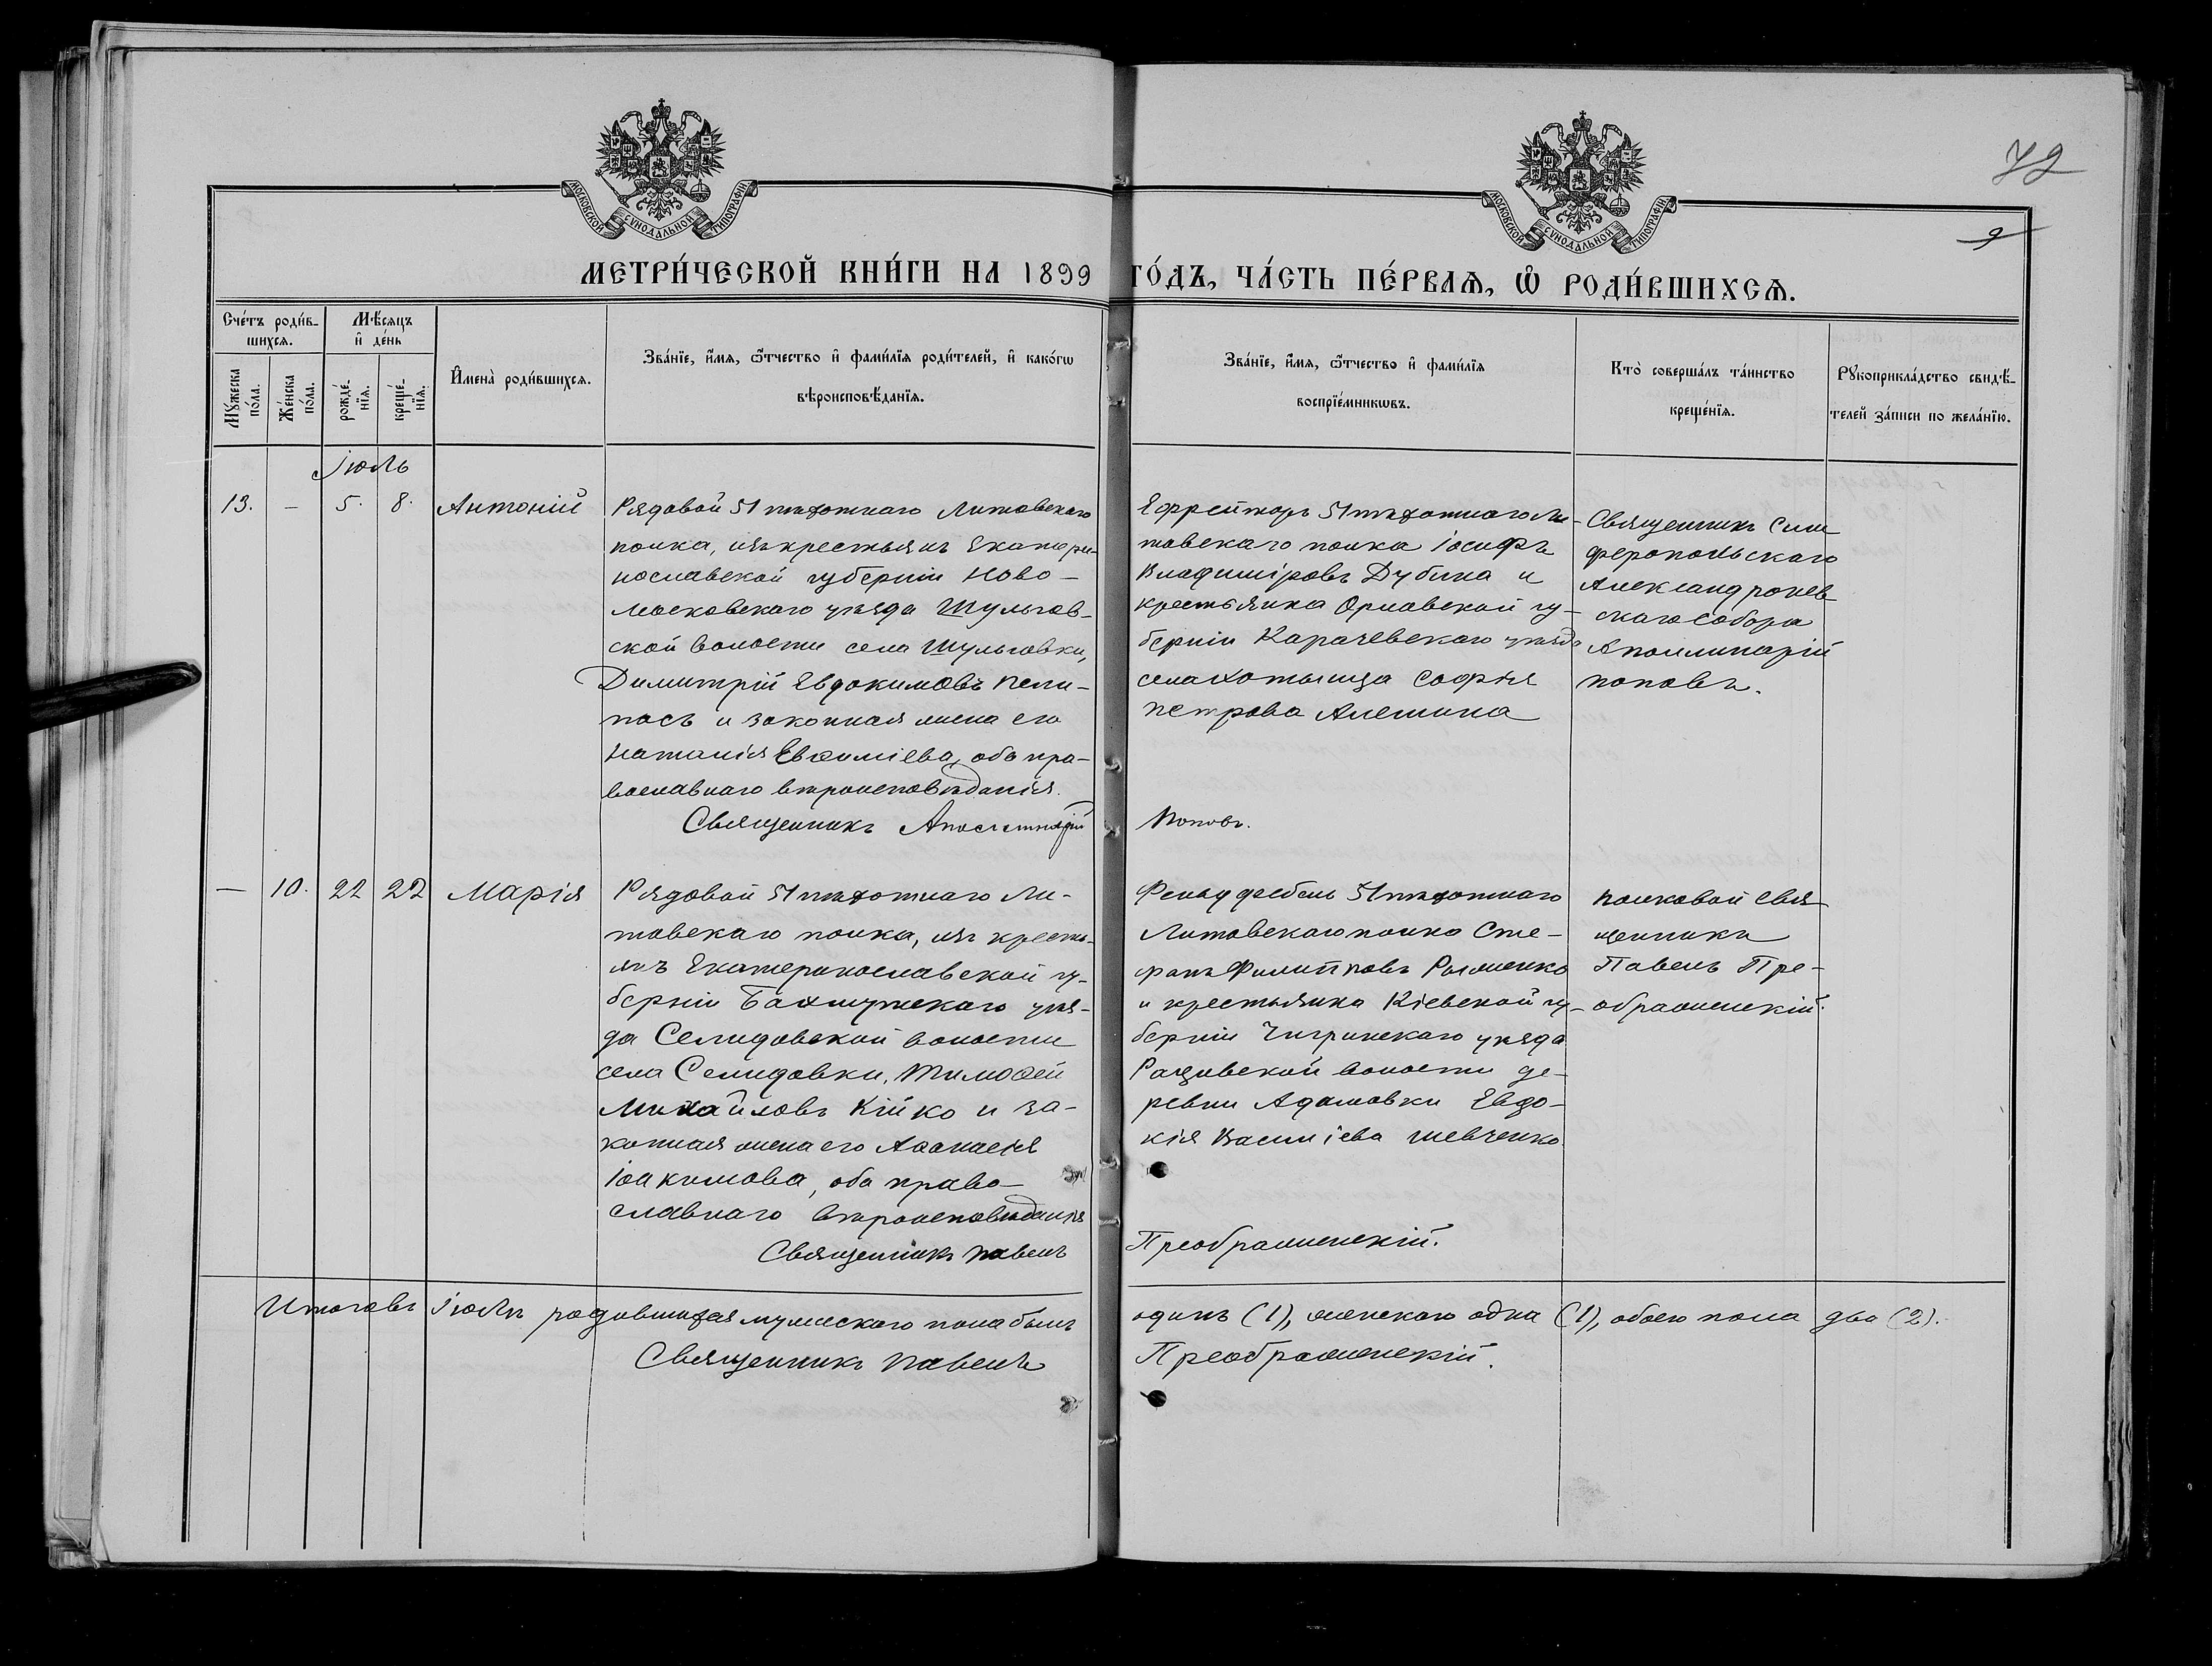 72
9
МОСКОВСКОЙ СѴНОДАЛЬНОЙ ТИПОГРАФІИ
МОСКОВСКОЙ СѴНОДАЛЬНОЙ ТИПОГРАФІИ
МЕТРИ́ЧЕСКОЙ КНИ́ГИ НА 1899 ГО́ДЪ, ЧА́СТЬ ПЕ́РВАѦ, Ѡ҆ РОДИ́ВШИХСѦ.
Сче́тъ роди́в-
шихсѧ.
Мѣ́сѧцъ
и҆ де́нь
Мꙋ́жеска
по́ла.
Же́нска
по́ла.
рожде́-
нїѧ.
креще́-
нїѧ.
И҆мена̀ роди́вшихсѧ.
Зва́нїе, и҆́мѧ, ѻ҆́тчество и҆ фами́лїѧ роди́телей, и҆ како́гѡ
вѣроисповѣ́данїѧ.
Зва́нїе, и҆́мѧ, ѻ҆́тчество и҆ фами́лїѧ
воспрїе́мникѡвъ.
Кто̀ соверша́лъ та́инство
креще́нїѧ.
Рꙋкоприкла́дство свидѣ́-
телей за́писи по жела́нїю.
Іюль
13. — 5. 8. Антоній
Рядовой 51 пѣхотнаго Литовскаго
полка, изъ крестьянъ Екатери-
нославской губерніи Ново-
московскаго уѣзда Шульгов-
ской волости села Шульговки,
Димитрій Евдокимовъ Пели-
пасъ и законная жена его
Наталія Евѳиміева, оба пра-
вославнаго вѣроисповѣданія.
Священникъ Аполлинарій Поповъ.
Ефрейторъ 51 пѣхотнаго Ли-
товскаго полка Іосифъ
Владиміровъ Дубина и
крестьянка Орловской гу-
берніи Карачевскаго уѣзда
села Хотынца Софія
Петрова Алешина
Священникъ Сим
феропольскаго
Александроневъ
скаго собора
Аполлинарій
Поповъ.
— 10. 22 22 Марія
Рядовой 51 пѣхотнаго Ли-
товскаго полка, изъ кресть-
янъ Екатеринославской гу-
берніи Бахмутскаго уѣз-
да Селидовской волости
села Селидовки, Тимоѳей
Михайловъ Кійко и за-
конная жена его Аѳанасія
Іоакимова, оба право-
славнаго вѣроисповѣданія
Священникъ Павелъ Преображенскій.
Фельдфебель 51 пѣхотнаго
Литовскаго полка Сте-
фанъ Филипповъ Рыженко
и крестьянка Кіевской гу-
берніи Чигринскаго уѣзда
Рацевской волости де-
ревни Адамовки Евдо-
кія Василіева Шевченко
Полковой свя
щенникъ
Павелъ Пре-
ображенскій.
Итого въ Іюлѣ родившихся мужескаго пола былъ одинъ (1), женскаго одна (1), обоего пола два (2).
Священникъ Павелъ Преображенскій.